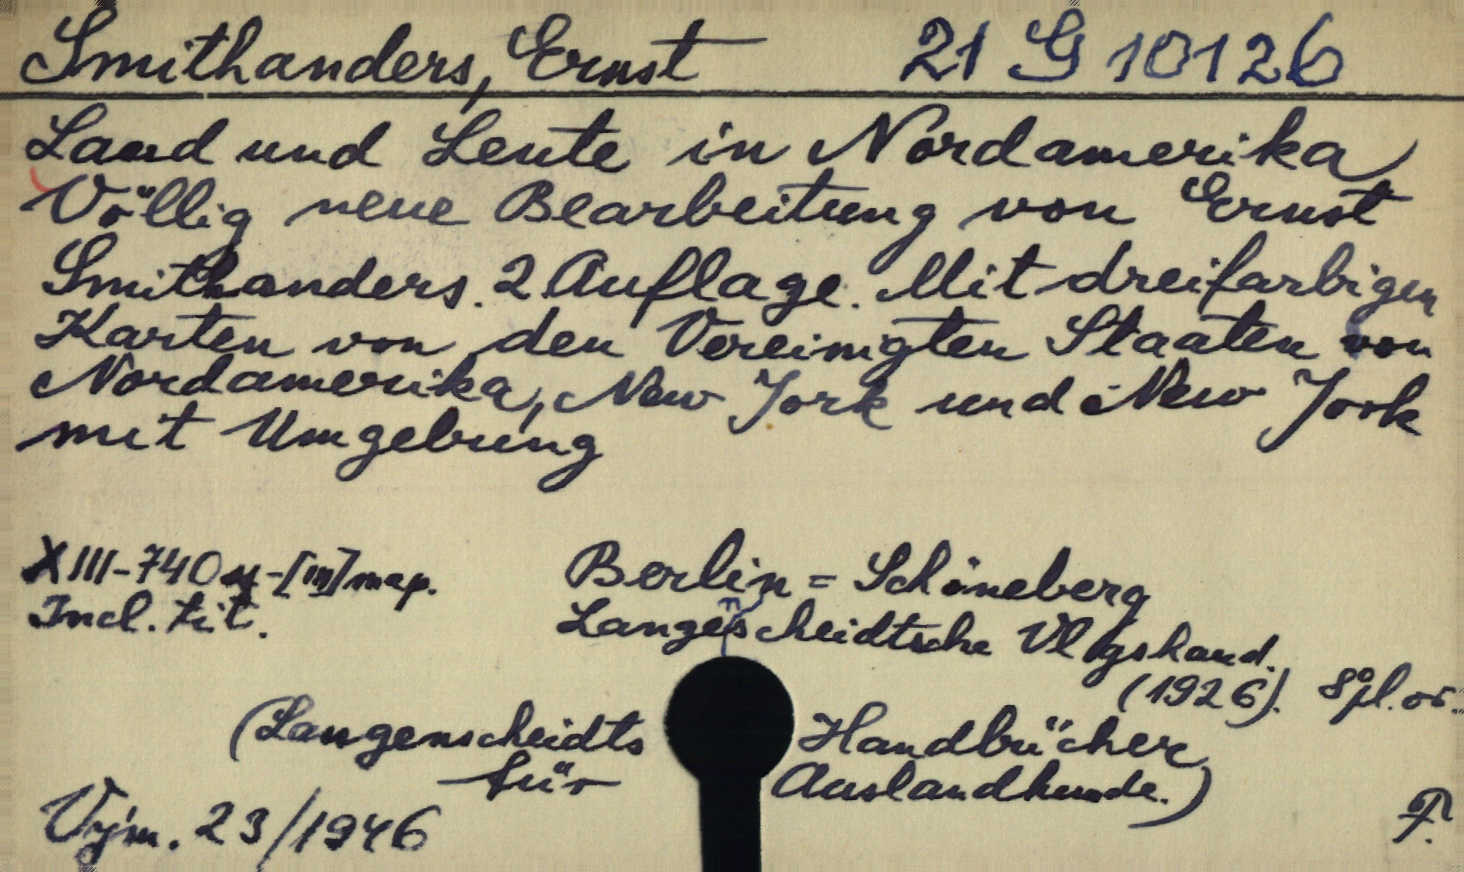 Smithanders, Ernst 21 G 10126
Land und Leute in Nordamerika
Völlig neue Bearbeitung von Ernst
Smithanders. 2. Auflage. Mit dreifarbigen
Karten von den Vereinigten Staaten von
Nordamerika, New York und New York
mit Umgebung
XIII-740 -[III] map. Berlin=Schöneberg
Incl. tit. Langenscheidtsche Vlgshand.
(1926). 8° pl. or.
(Langenscheidts Handbücher
für Auslandkunde.)
Vým. 23/1946 F.